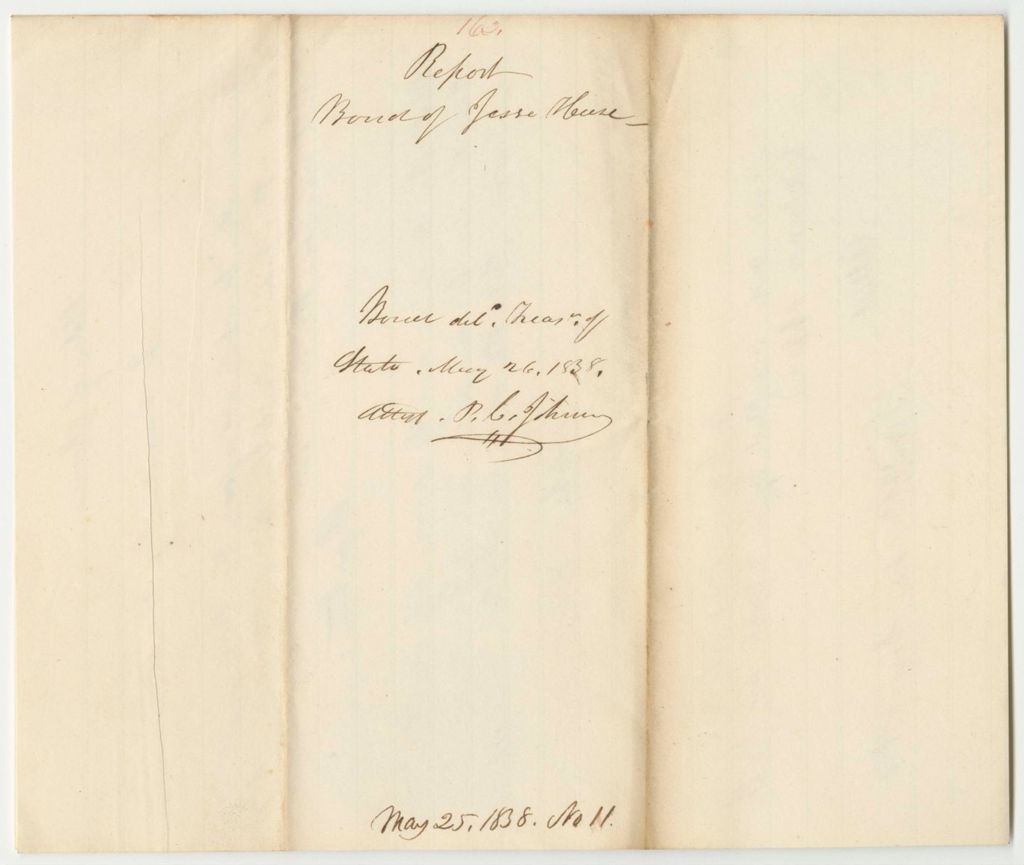 162.
Report
Bond of Jesse Huse
Bond del'd. Treasr. of
State. May 26. 1838.
Attest. P. C. Johnson
May 25. 1838. No 11.